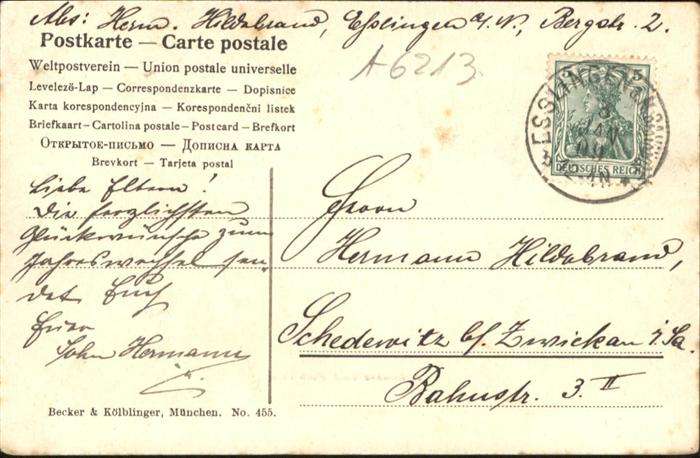 Abs: Herm. Hildebrand, Esslingen a/N., Bergstr. 2.
Postkarte — Carte postale
Weltpostverein — Union postale universelle
Levelező-Lap — Correspondenzkarte — Dopisnice
Karta korespondencyjna — Korespondenční lístek
Briefkaart — Cartolina postale — Postcard — Brefkort
Открытое-письмо — Дописна карта
Brevkort — Tarjeta postal
A6213
5
ESSLINGEN
DEUTSCHES REICH
Liebe Eltern!
Die herzlichsten
Glückwünsche zum
Jahreswechsel sen-
det Euch
Euer
Sohn Hermann
Herrn
Hermann Hildebrand,
Schedewitz bs. Zwickau i/Sa.
Bahnstr. 3. II
Becker & Kölblinger, München. No. 455.